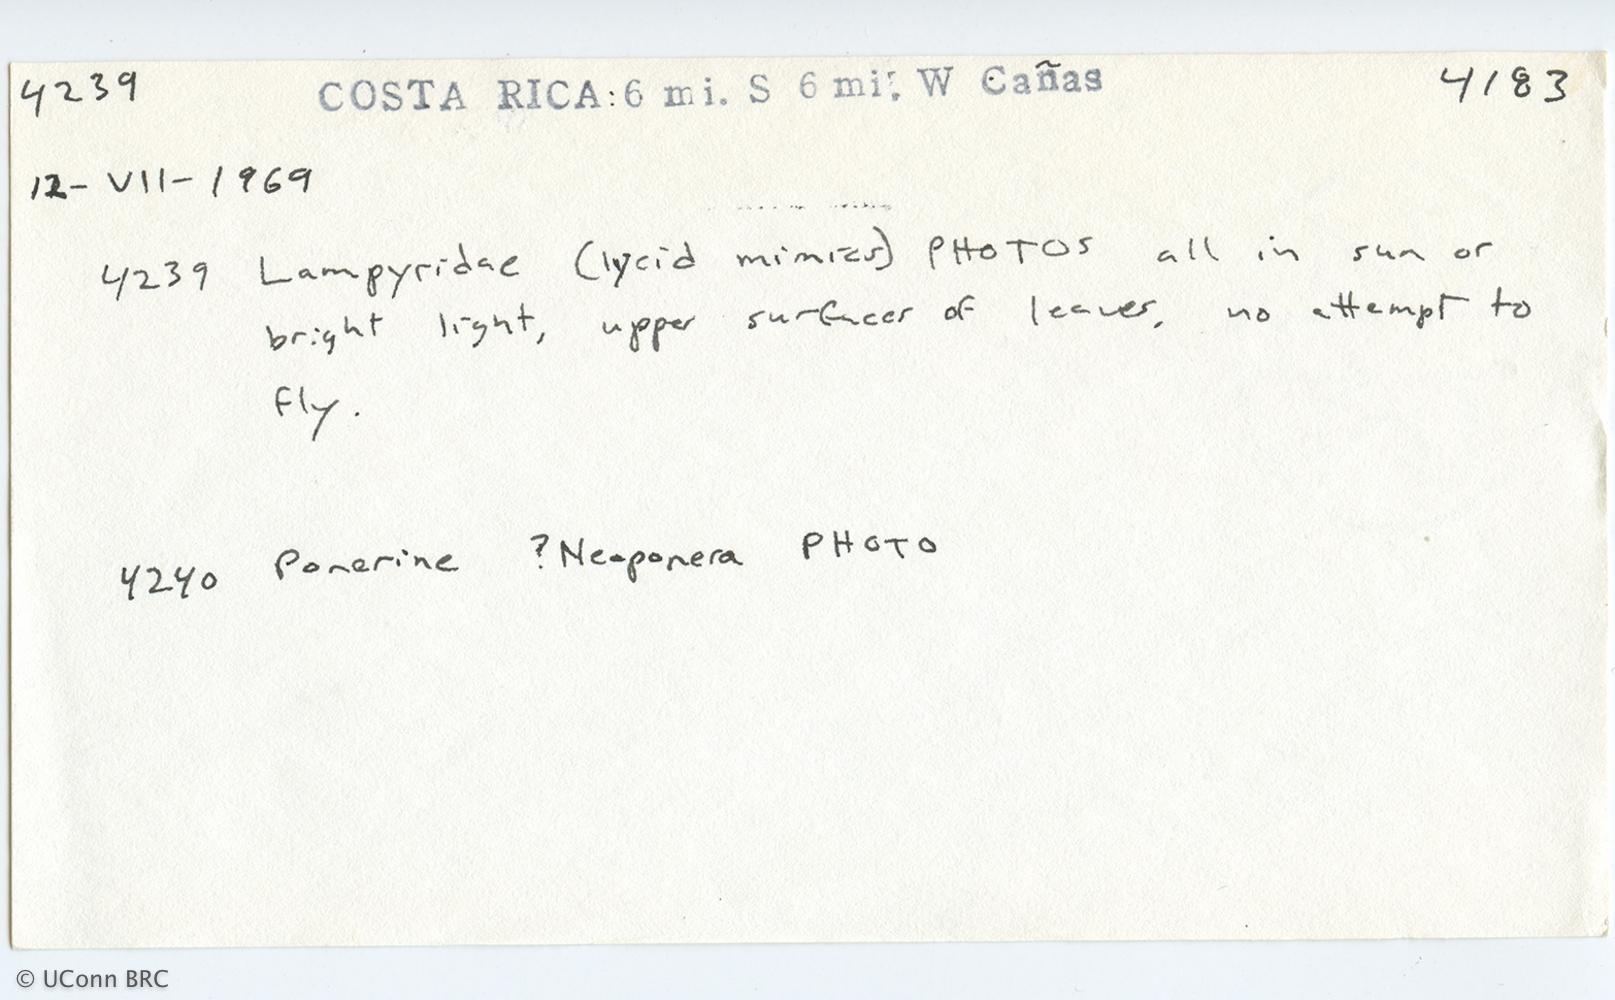 4239 COSTA RICA: 6 mi. S 6 mi. W Cañas 4183
12-VII-1969
4239 Lampyridae (lycid mimics) PHOTOS all in sun or
bright light, upper surfaces of leaves, no attempt to
fly.
4240 Ponerine ?Neoponera PHOTO
© UConn BRC